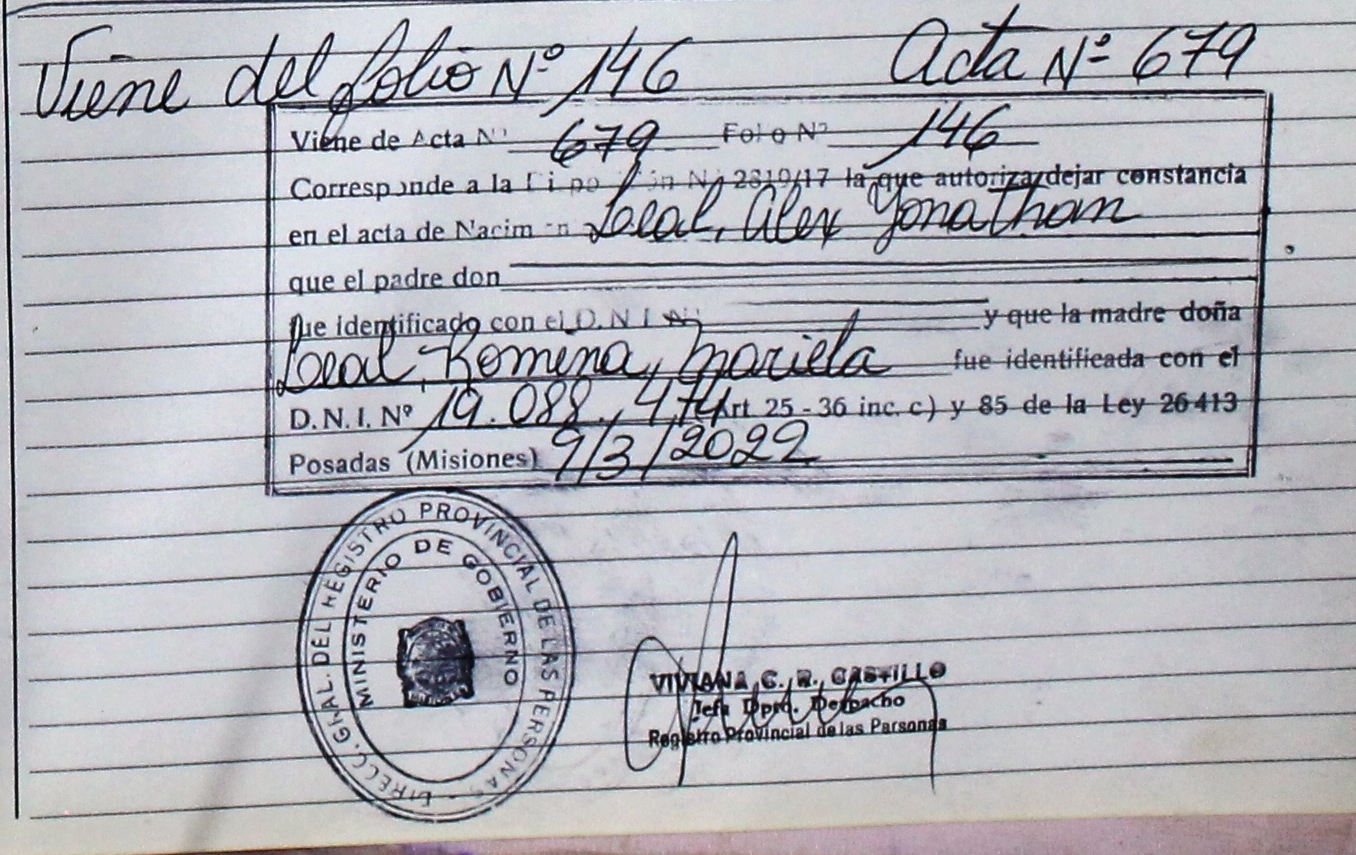 Viene del folio Nº 146 Acta Nº 679
Viene de Acta Nº 679 Folio Nº 146
Corresponde a la Nº 2819/17 la que autoriza dejar constancia
en el acta de Nacim Leal, Alex Yonathan
que el padre don
fue identificado con el D. N I Nº y que la madre doña
Leal, Romina, Mariela fue identificada con el
D. N. I. Nº 19.088.474 Art 25 - 36 inc. c) y 85 de la Ley 26413
Posadas (Misiones) 9/3/2022
DIRECC. GRAL. DEL REGISTRO PROVINCIAL DE LAS PERSONAS
MINISTERIO DE GOBIERNO
VIVIANA C. R. CASTILLO
Jefa Dpto. Despacho
Registro Provincial de las Personas